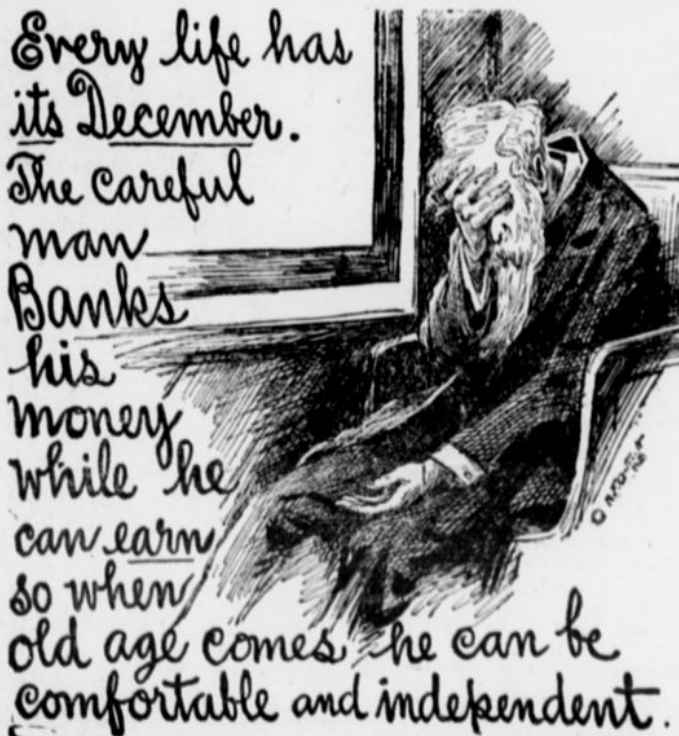 Every life has
its December.
The careful
man
Banks
his
money
while he
can earn
so when
old age comes he can be
comfortable and independent.